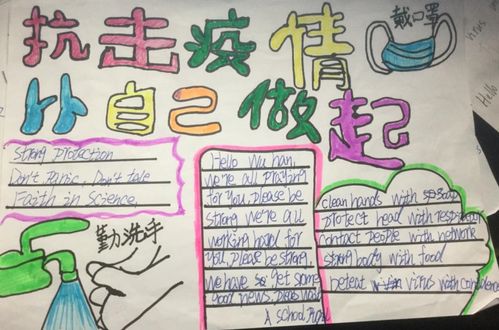 抗击疫情
戴口罩
从自己做起
Strong protection
Don't Panic, Don't take
Faith in Science,
勤洗手
Hello Wu han,
we're all praying
for you, please be
strong we're all
working hard for
you, please be strong.
we have so get some
good news.
A school
clean hands with soap
protect head with
contact people with network
strong body with food
virus with
Hello